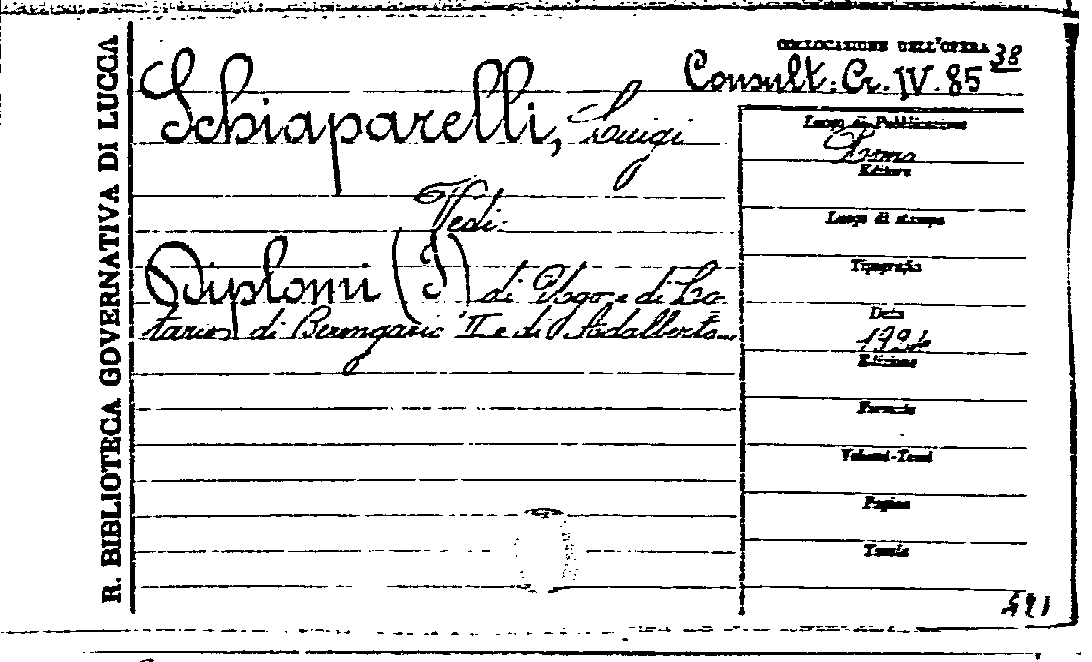 R. BIBLIOTECA GOVERNATIVA DI LUCCA
COLLOCAZIONE DELL'OPERA
Consult: Cr. IV. 85 38
Schiaparelli, Luigi
Vedi:
Diplomi (I) di Ugo e di Lo-
tario, di Berengario II e di Adalberto
Luogo di Pubblicazione
Roma
Editore
Luogo di stampa
Tipografia
Data
1924
Edizione
Formato
Volumi-Tomi
Pagine
Tavole